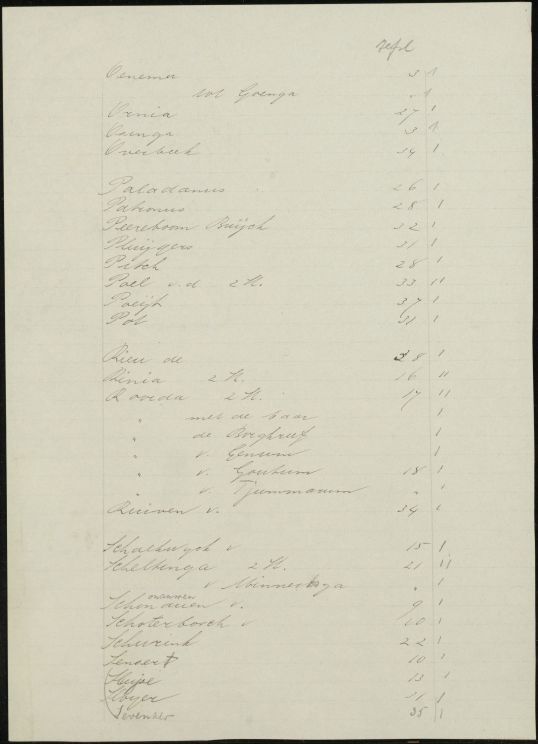 Tafel
Oenema 3 1
tot Goenga „ 1
Ornia 27 1
Osinga 3 1
Overbeek 34 1
Paludanus 26 1
Patronus 28 1
Peereboom Buijck 32 1
Pluijgers 31 1
Pitch 28 1
Poel v.d. 2 K. 33 11
Poeijt 37 1
Pot 31 1
Rieu de 38 1
Rinia 2 K. 16 11
Roorda 2 K. 17 11
" met de baar 1
" de Borghruf 1
" v. Genum 1
" v. Goutum 18 1
" v. Tjummarum „ 1
Ruiven v. 34 1
Schalkwyck v 15 1
Scheltinga 2 K. 21 11
v Minnertsga „ 1
Schonauwen v. 9 1
Schoterbosch v 10 1
Schurink 22 1
Senaert 10 1
13 1
31 1
Sevenster 35 1